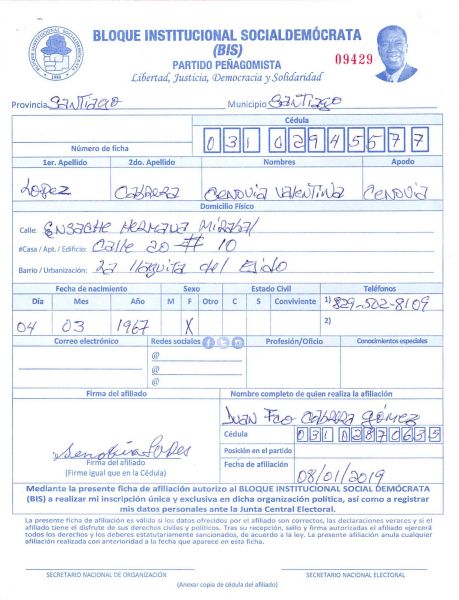 BLOQUE INSTITUCIONAL SOCIALDEMÓCRATA
(BIS)
PARTIDO PEÑAGOMISTA
Libertad, Justicia, Democracia y Solidaridad
09429
BLOQUE INSTITUCIONAL SOCIALDEMÓCRATA
Provincia Santiago Municipio Santiago
Cédula
Número de ficha 031 0294557 7
1er. Apellido 2do. Apellido Nombres Apodo
Lopez Cabrera Cenovia Valentina Cenovia
Domicilio Físico
Calle: Ensache Hermana Mirabal
#Casa / Apt. / Edificio: Calle 20 # 10
Barrio / Urbanización: La Yaguita del Ejido
Fecha de nacimiento Sexo Estado Civil Teléfonos
Día Mes Año M F Otro C S Conviviente 1) 829-502-8109
04 03 1967 X 2)
Correo electrónico Redes sociales Profesión/Oficio Conocimientos especiales
@
@
@
Firma del afiliado Nombre completo de quien realiza la afiliación
Juan Fco Cabrera Gómez
Cédula 031 0287065 5
Senovia Lopes
Posición en el partido
Firma del afiliado
(Firme igual que en la Cédula)
Fecha de afiliación 08/01/2019
Mediante la presente ficha de afiliación autorizo al BLOQUE INSTITUCIONAL SOCIAL DEMÓCRATA
(BIS) a realizar mi inscripción única y exclusiva en dicha organización política, así como a registrar
mis datos personales ante la Junta Central Electoral.
La presente ficha de afiliación es válida si los datos ofrecidos por el afiliado son correctos, las declaraciones veraces y si el
afiliado tiene el disfrute de sus derechos civiles y políticos. Tras su recepción, sello y firma autorizada el afiliado ejercerá
todos los derechos y los deberes estatutariamente sancionados, de acuerdo a la ley. La presente afiliación anula cualquier
afiliación realizada con anterioridad a la fecha que aparece en esta ficha.
SECRETARIO NACIONAL DE ORGANIZACIÓN SECRETARIO NACIONAL ELECTORAL
(Anexar copia de cédula del afiliado)